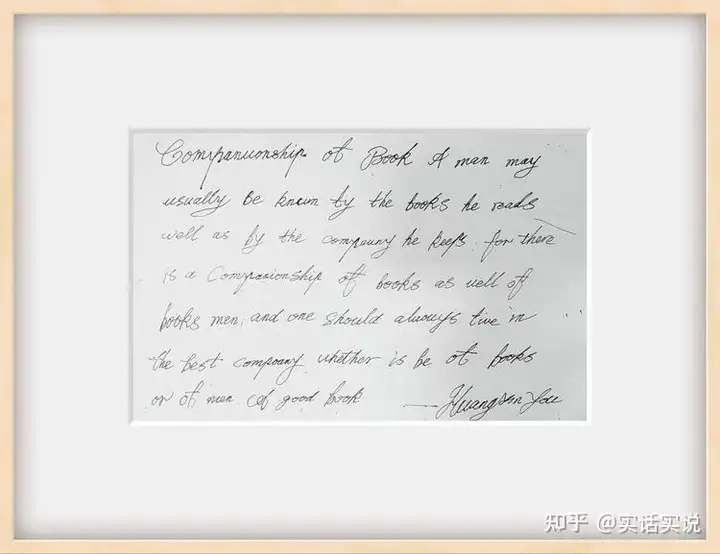 Companionship of Book A man may
usually be known by the books he reads
well as by the company he keeps. for there
is a Companionship of books as well of
books men, and one should always live in
the best company whether is be of books
or of men A good book
知乎 @实话实说